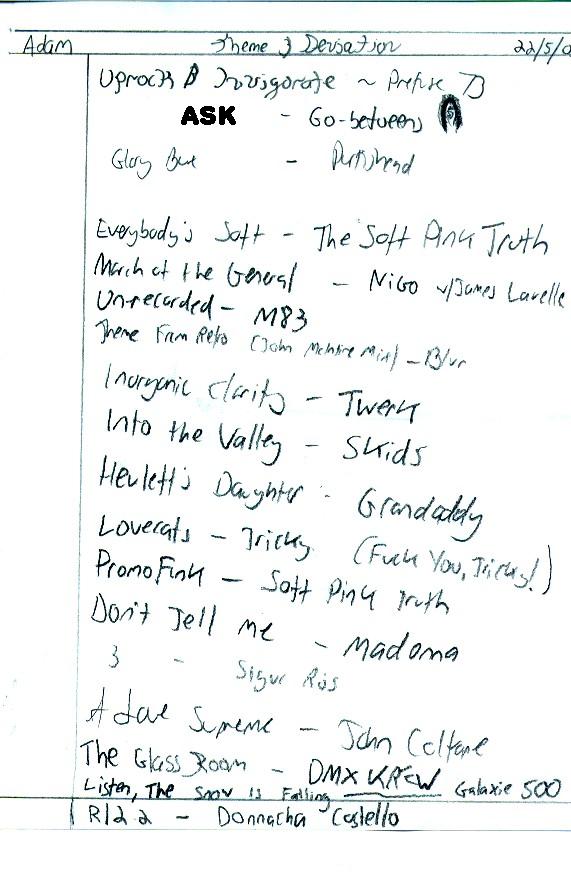 Adam Theme & Deviation 22/5/0
Uprock & Invigorate ~ Prefuse 73
ASK - Go-betweens
Glory Box - Portishead
Everybody's Soft - The Soft Pink Truth
March of the General - Nigo w/James Lavelle
Unrecorded - M83
Theme From Retro (John McIntire Mix) - Blur
Inorganic Clarity - Twerk
Into the Valley - Skids
Hewlett's Daughter - Grandaddy
Lovecats - Tricky (Fuck You, Tricky!)
PromoFunk - Soft Pink Truth
Don't Tell me - Madonna
3 - Sigur Rós
A Love Supreme - John Coltrane
The Glass Room - DMX KREW
Listen, The Snow is Falling Galaxie 500
R122 - Donnacha Costello